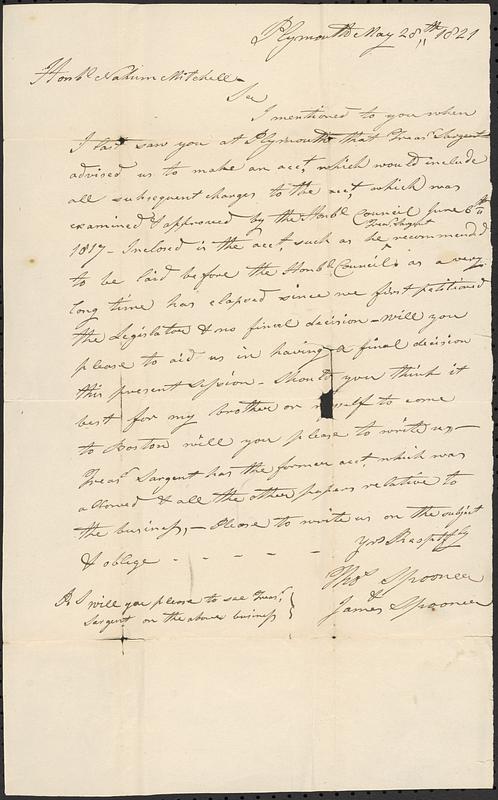 Plymouth May 28,,th 1821
Honbl Nahum Mitchell
Sir
I mentioned to you when
I last saw you at Plymouth that Treasr Sargent
advised us to make an acct, which would include
all subsequent charges to the acct, which was
examined & approved by the Honbl Council June 6th
1817 - Inclosed is the acct, such as he Treasr Sargent recommend
to be laid before the Honbl Council, as a very
long time has elapsed since we first petitioned
the Legislator & no final decision - will you
please to aid us in having a final decision
this present session - Should you think it
best for my brother or myself to come
to Boston will you please to write us -
Treasr Sargent has the former acct, which was
allowed & all the other papers relative to
the business, - Please to write us on the subject
& oblige - - - - -
Yrs Respectfly
Thos Spooner
&
James Spooner
P. S will you please to see Treasr
Sargent on the above business